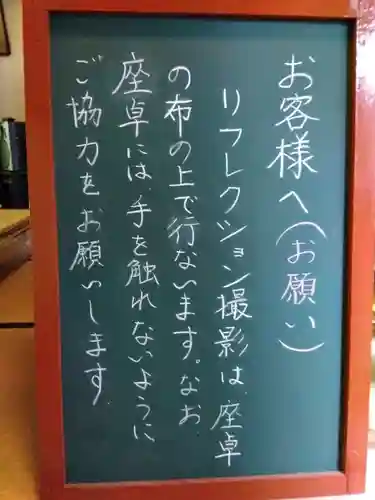 お客様へ(お願い)
リフレクション撮影は、座卓
の布の上で行ないます。なお、
座卓には、手を触れないように
ご協力をお願いします。